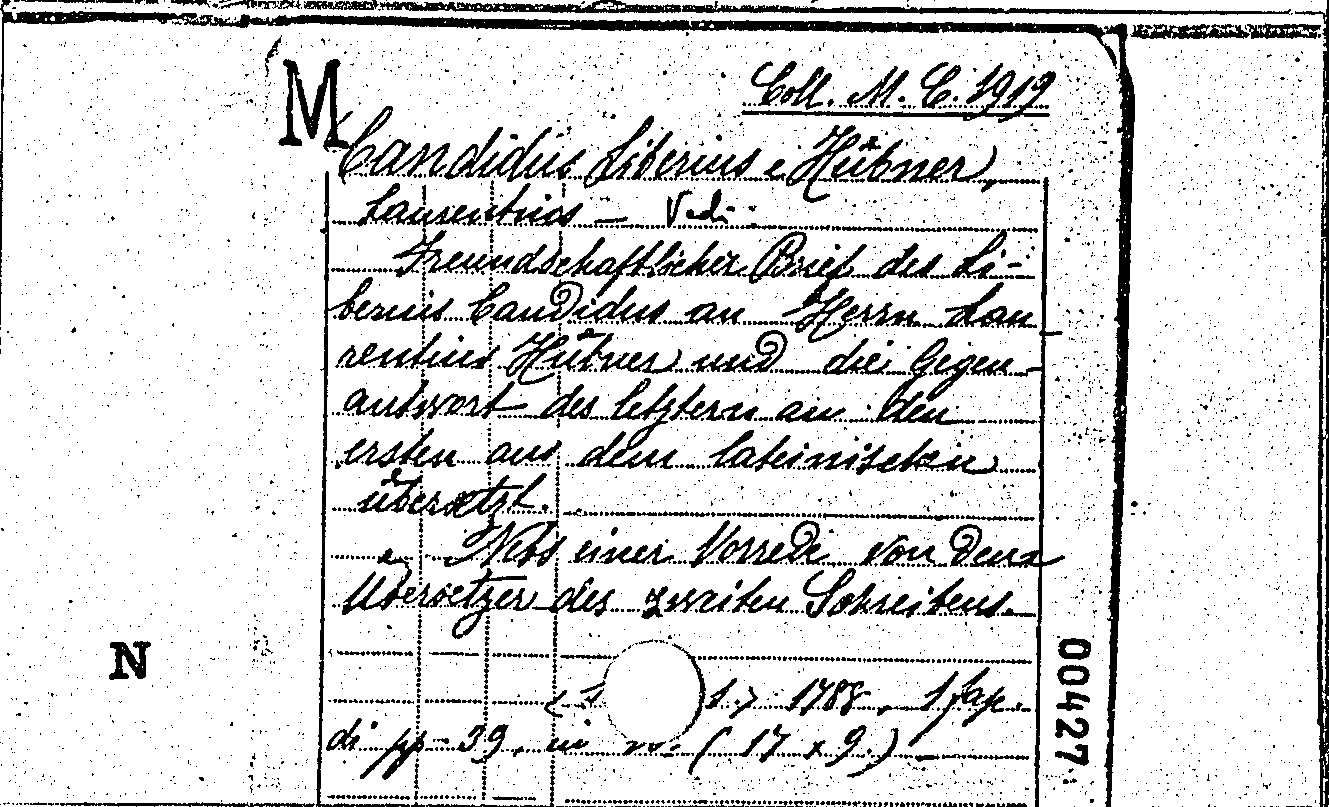 M
Coll. M. C. 1919
Candidus Liberius e Hübner,
Laurentius — Vedi:
Freundschaftlicher Brief des Li-
berius Candidus an Herrn Lau
rentius Hübner und die Gegen-
antwort des letztern an den
ersten aus dem lateinischen
übersetzt.
Nebs einer Vorrede von dem
Übersetzer des zweiten Schreibens.
N
1788, 1 fap.
di pp. 39, in (17 x 9.)
00427